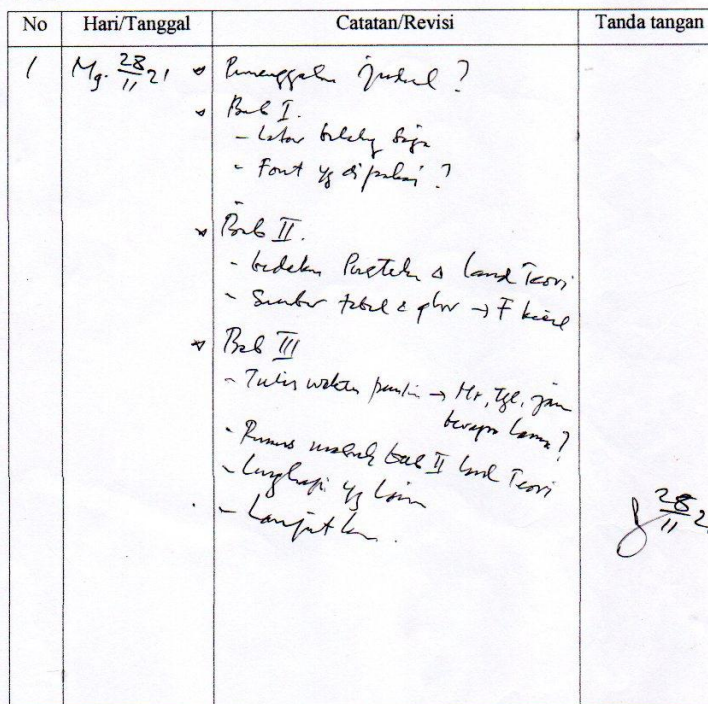 No Hari/Tanggal Catatan/Revisi Tanda tangan
1 Mg. 28/11 21 Pemenggalan judul ?
Bab I.
- Latar belakg saja
- Font yg dipakai ?
Bab II.
- bedakan Pustaka & Land Teori
- Sumber tabel & gbr → F kecil
Bab III
- Tulis waktu → Hr, Tgl, jam
berapa lama ?
- Rumus masuk bab II Land Teori
- Lengkapi yg lain
- Lanjutkan.
28/11 2